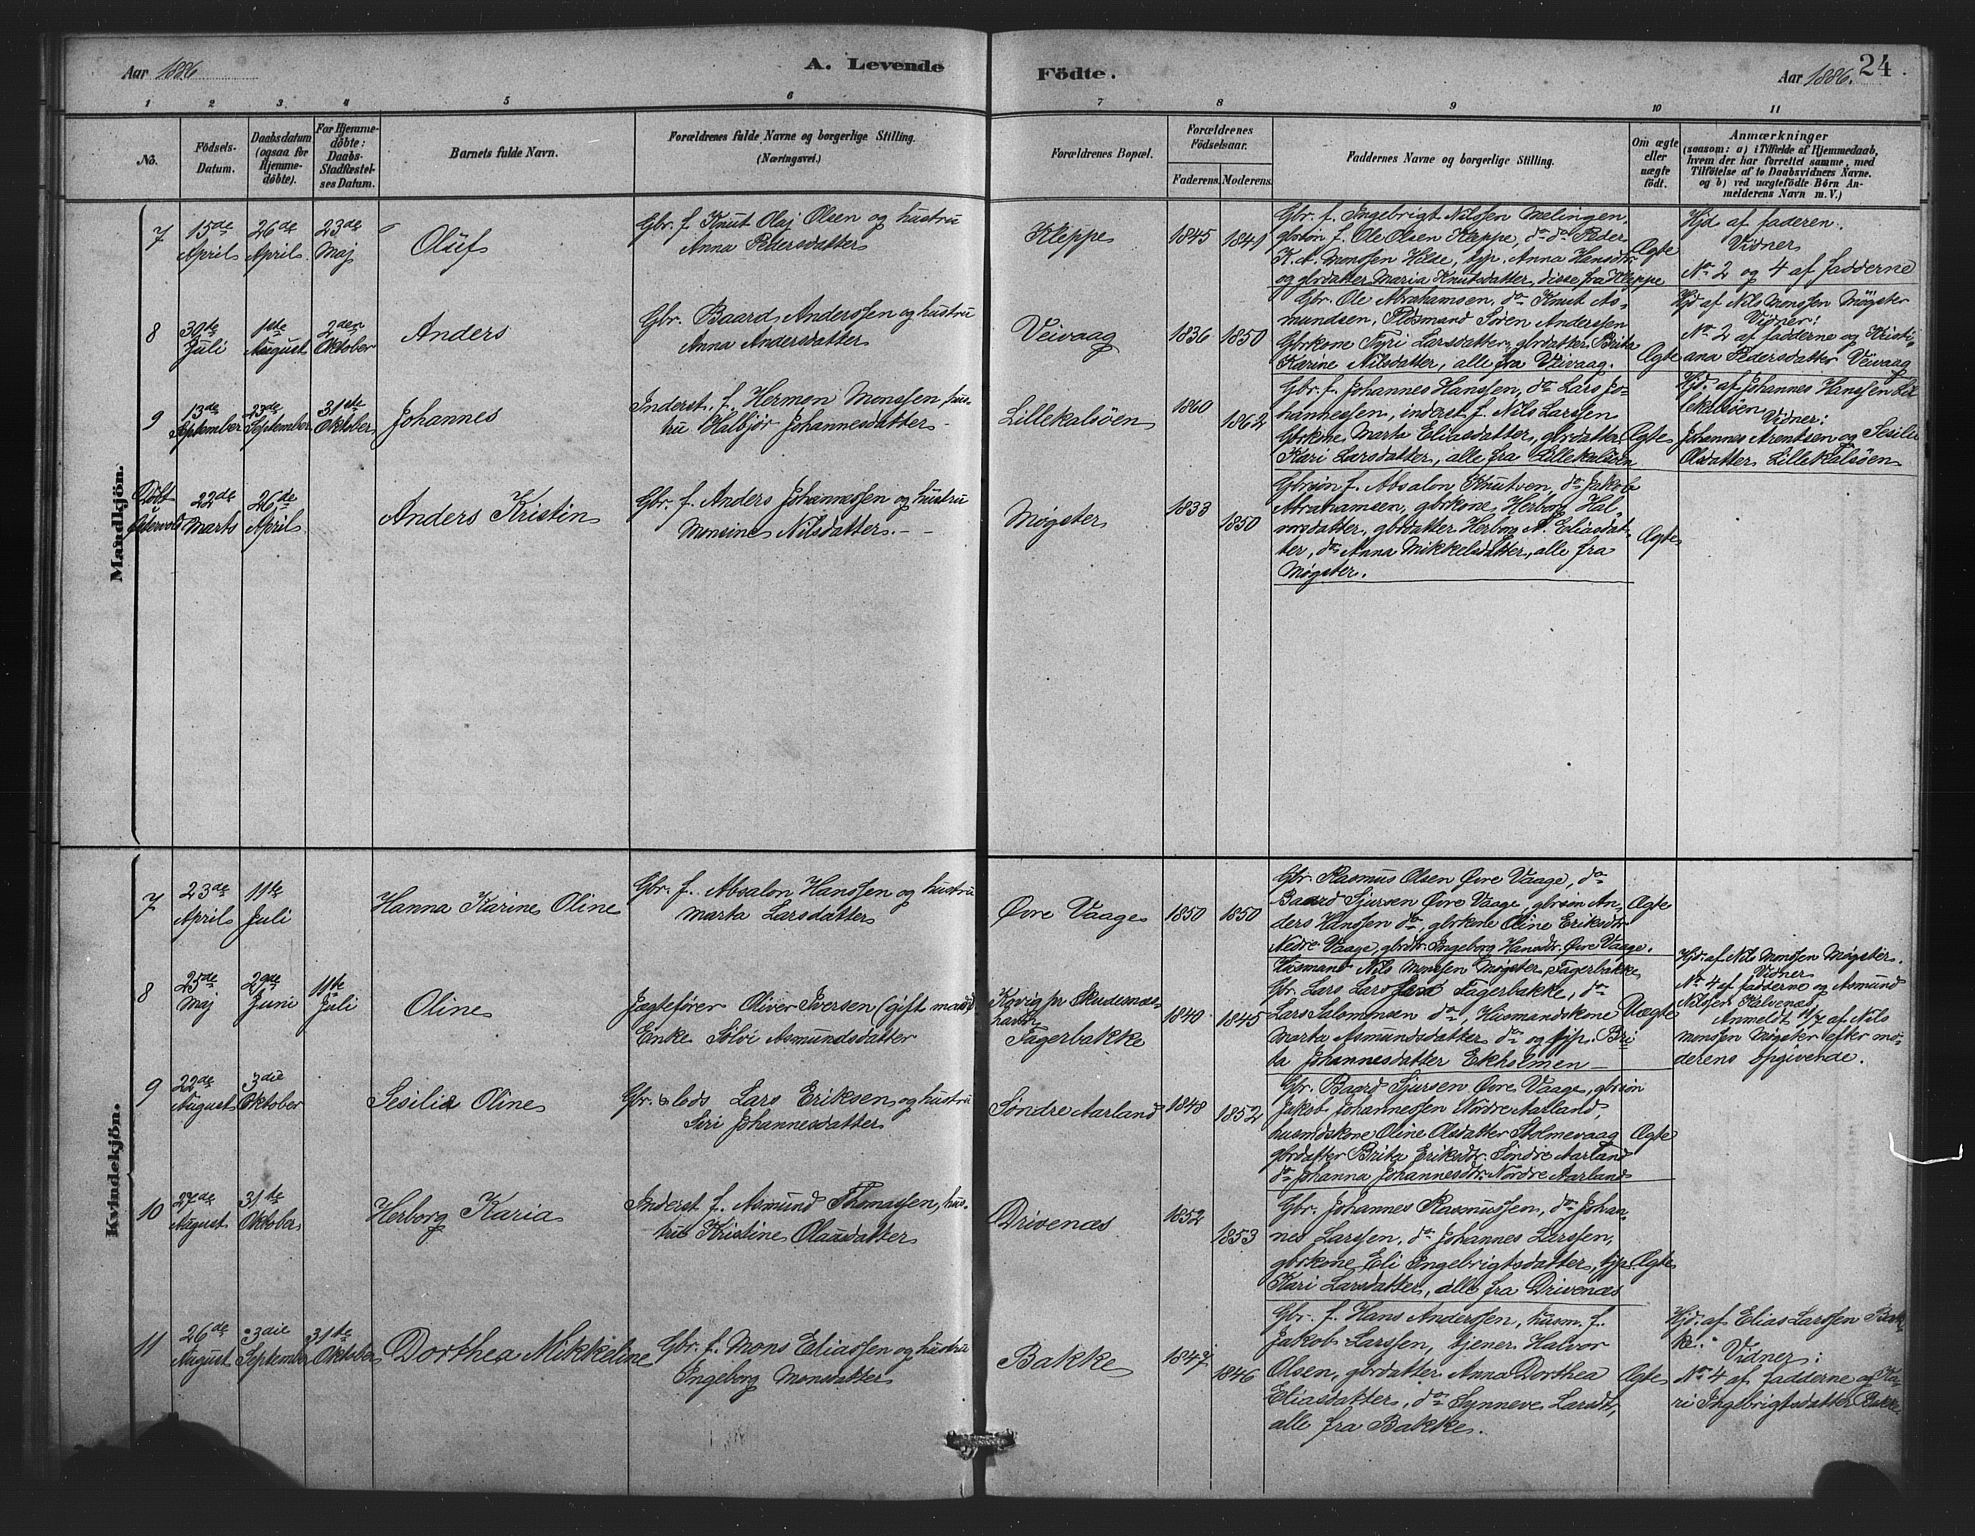 Aar 1886
A. Levende
Födte.
Aar 1886.
24.
1 2 3 4 5 6 7 8 9 10 11
No.
Födsels-
Datum.
Daabsdatum
(ogsaa for
Hjemme-
döbte).
For Hjemme-
döbte:
Daabs-
Stadfæstel-
ses Datum.
Barnets fulde Navn.
Forældrenes fulde Navne og borgerlige Stilling.
(Næringsvei.)
Forældrenes Bopæl.
Forældrenes
Födselsaar.
Faderens. Moderens.
Faddernes Navne og borgerlige Stilling.
Om ægte
eller
uægte
födt.
Anmærkninger
(saasom: a) i Tilfælde af Hjemmedaab,
hvem der har forrettet samme, med
Tilföielse af to Daabsvidners Navne.
og b) ved uægtefödte Börn An-
melderens Navn m. V.)
Mandkjön.
7
15de
April
26de
April
23de
Maj
Oluf
Gbr. f. Knut Olaj Olsen og hustru
Anna Pedersdatter
Kleppe
1845
1841
Gbr. f. Ingebrigt Nilssen Mælingen,
gbrsøn f. Ole Olsen Kleppe, do do Peder
K. A. Monssen Hilde, tjp. Anna Hansdtr
og gbrdatter Maria Knutsdatter, disse fra Kleppe
Ægte
Hjd af faderen.
Vidner
No 2 og 4 af fadderne
8
30te
Juli
1ste
August
2den
Oktober
Anders
Gbr. Baard Anderssen og hustru
Anna Andersdatter
Veivaag
1836
1850
Gbr. Ole Abrahamsen, do Knut As-
mundsen, Søren Anderssen
Gbrkone Syri Larsdatter, gbrdatter Brita
Karine Nilsdatter, alle fra Veivaag.
Ægte
Hjd af Nils Monssen Møgster
Vidner:
No 2 af fadderne og Kristi-
ana Pedersdatter Veivaag
9
13de
September
23de
September
31ste
Oktober
Johannes
Inderst. f. Hermon Monssen hus-
tru Halbjør Johannesdatter
Lillekalsøen
1860
1862
Gbr. f. Johannes Hanssen, do Lars Jo-
hannessen, inderst f. Nils Larssen
Gbrkone Marta Eliasdatter, gbrdatter
Kari Larsdatter, alle fra Lillekalsøen
Ægte
Hjd. af Johannes Hanssen Lil-
lekalsøen
Vidner:
Johannes Arentsen og Sesilie
Olsdatter Lillekalsøen
Døbt
22de
Marts
26de
April
Anders Kristin
Gbr. f. Anders Johannessen og hustru
Monsine Nilsdatter.
Møgster
1833
1850
Gbrsøn f. Absalon Knutven, do Jakob
Abrahamsen, gbrkone Herborg Hal-
vorsdatter, gbrdatter Herborg N. Eliasdat-
ter, do Anna Mikkelsdatter, alle fra
Møgster.
Ægte
Kvindekjön.
7
23de
April
11te
Juli
Hanna Karine Oline
Gbr. f. Absalon Hanssen og hustru
Marta Larsdatter
Øvre Vaage
1850
1850
Gbr. Rasmus Olsen Øvre Vaage, do
Baard Sjursen Øvre Vaage, gbrsøn An-
ders Hanssen do, gbrkone Oline Eriksdtr
Nedre Vaage, gbrdtr. Ingeborg Hansdtr. Øvre Vaage.
Ægte
8
25de
Maj
29de
Juni
11te
Juli
Oline
Jægtefører Oliver Iversen (gift mand)
Enke Silvi Asmundsdatter
Kovig pr Skudenæs-
havn
Fagerbakke
1840
1845
Husmand Nils Monssen Møgster Fagerbakke
Gbr. Lars Larssen Fagerbakke, do
Lars Salomonsen do, Husmandskone
Marta Asmundsdatter do og tjp. Bri-
ta Johannesdatter Ekholmen
Uægte
Hjd. af Nils Monssen Møgster.
Vidner
No 4 af fadderne og Asmund
Nilssen Kalvenæs
Anmeldt 7 af Nils
Monssen Møgster efter mo-
derens opgivende.
9
22de
August
3die
Oktober
Sesilia Oline
Gbr. & lods Lars Eriksen og hustru
Siri Johannesdatter
Søndre Aarland
1848
1852
Gbr. Baard Sjursen Øvre Vaage, gbrsøn
Jakob Johannessen Nordre Aarland,
husmdskone Oline Olsdatter Stolmevaag
gbrdatter Brita Eriksdtr. Søndre Aarland
do Johanna Johannesdtr. Nordre Aarland
Ægte
10
27de
August
31te
Oktober
Herborg Karia
Inderst f. Asmund Thomassen, hus-
tru Kristine Olausdatter
Drivenæs
1852
1853
Gbr. Johannes Rasmussen, do Johan-
nes Larssen, do Johannes Larssen,
gbrkone Eli Ingebrigtsdatter, tjp.
Kari Larsdatter, alle fra Drivenæs
Ægte
11
26de
August
3die
September
31te
Oktober
Dorthea Mikkeline
Gbr. f. Mons Eliassen og hustru
Ingeborg Monsdatter
Bakke
1847
1846
Gbr. f. Hans Anderssen, husm. f.
Jakob Larssen, tjener Halvor
Olsen, gbrdatter Anna Dorthea
Eliasdatter, do Synneve Larsdtr,
alle fra Bakke.
Ægte
Hjd. af Elias Larssen Bak-
ke.
Vidner:
No 4 af fadderne og Ka-
ri Ingebrigtsdatter Bakke.